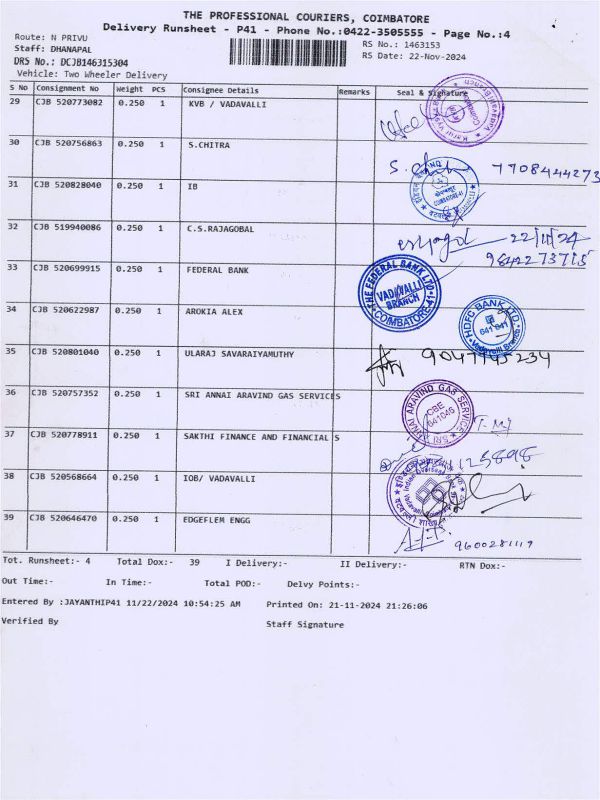 THE PROFESSIONAL COURIERS, COIMBATORE
Delivery Runsheet - P41 - Phone No.:0422-3505555 - Page No.:4
Route: N PRIVU
RS No.: 1463153
Staff: DHANAPAL
RS Date: 22-Nov-2024
DRS No.: DCJB146315304
Vehicle: Two Wheeler Delivery
S No Consignment No Weight PCS Consignee Details Remarks Seal & Signature
29 CJB 520773082 0.250 1 KVB / VADAVALLI
30 CJB 520756863 0.250 1 S.CHITRA
7708444273
31 CJB 520828040 0.250 1 IB
COIMBATORE-41
32 CJB 519940086 0.250 1 C.S.RAJAGOBAL
22/11/24
9842273715
33 CJB 520699915 0.250 1 FEDERAL BANK
THE FEDERAL BANK LTD.
VADAVALLI
BRANCH
COIMBATORE-41
34 CJB 520622987 0.250 1 AROKIA ALEX
HDFC BANK LTD.
641 041
35 CJB 520801040 0.250 1 ULARAJ SAVARAIYAMUTHY
36 CJB 520757352 0.250 1 SRI ANNAI ARAVIND GAS SERVICES
SRI ANNAI ARAVIND GAS SERVICE
CBE
641046
37 CJB 520778911 0.250 1 SAKTHI FINANCE AND FINANCIAL S
38 CJB 520568664 0.250 1 IOB/ VADAVALLI
39 CJB 520646470 0.250 1 EDGEFLEM ENGG
9600281119
Tot. Runsheet:- 4 Total Dox:- 39 I Delivery:- II Delivery:- RTN Dox:-
Out Time:- In Time:- Total POD:- Delvy Points:-
Entered By :JAYANTHIP41 11/22/2024 10:54:25 AM Printed On: 21-11-2024 21:26:06
Verified By Staff Signature